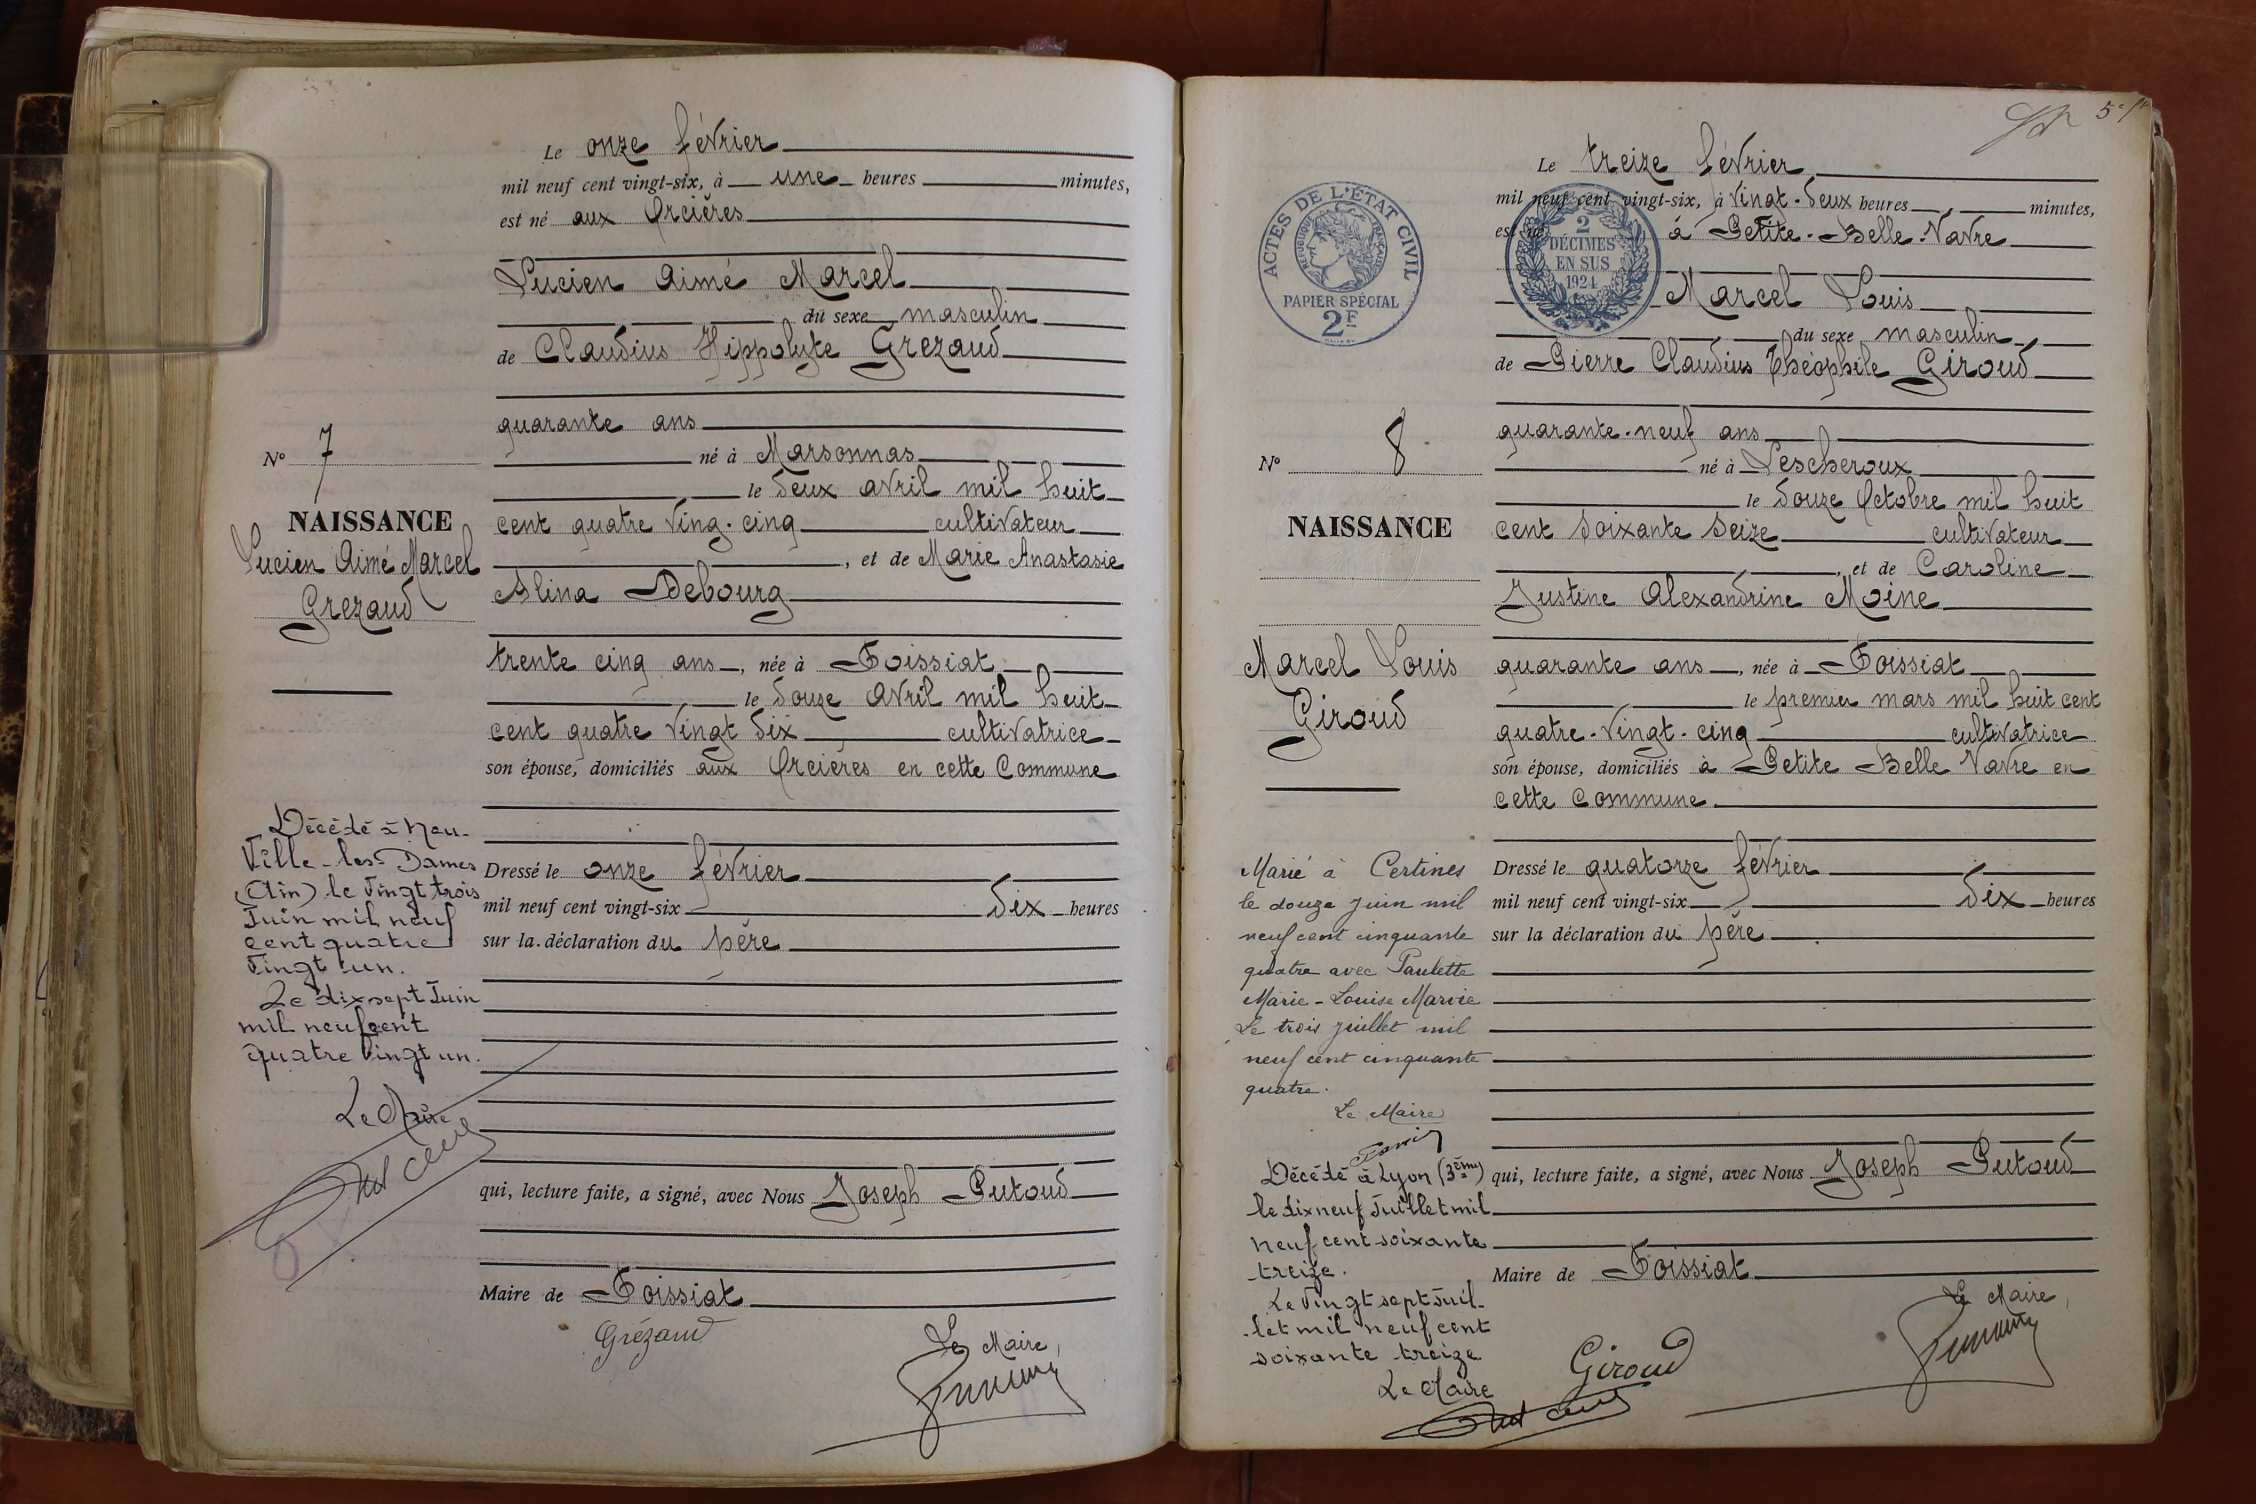 Le onze février
mil neuf cent vingt-six, à une heures minutes,
est né aux Orcières
Lucien Aimé Marcel
du sexe masculin
de Claudius Hippolyte Grezaud
quarante ans
né à Marsonnas
le deux avril mil huit
cent quatre ving-cinq cultivateur
, et de Marie Anastasie
Alina Debourg
trente cinq ans, née à Foissiat
le douze avril mil huit
cent quatre vingt dix cultivatrice
son épouse, domiciliés aux Orcières en cette Commune
Dressé le onze février
mil neuf cent vingt-six dix heures
sur la déclaration du père
qui, lecture faite, a signé, avec Nous Joseph Putoud
Maire de Foissiat
Grézaud
Le Maire,
N° 7
NAISSANCE
Lucien Aimé Marcel
Grezaud
Décédé à Neu-
Ville-les-Dames
(Ain) le vingt trois
Juin mil neuf
cent quatre
vingt un.
Le dix sept Juin
mil neuf cent
quatre vingt un.
Le Maire
5
Le treize février
mil neuf cent vingt-six, à vingt-deux heures minutes,
est né à Petite-Belle-Vavre
Marcel Louis
du sexe masculin
de Pierre Claudius Théophile Giroud
quarante-neuf ans
né à Lescheroux
le douze Octobre mil huit
cent soixante seize cultivateur
, et de Caroline
Justine Alexandrine Moine
quarante ans, née à Foissiat
le premier mars mil huit cent
quatre-vingt-cinq cultivatrice
son épouse, domiciliés à Petite Belle Vavre en
cette Commune
Dressé le quatorze février
mil neuf cent vingt-six dix heures
sur la déclaration du père
qui, lecture faite, a signé, avec Nous Joseph Putoud
Maire de Foissiat
Giroud
Le Maire,
ACTES DE L'ÉTAT CIVIL
RÉPUBLIQUE FRANÇAISE
PAPIER SPÉCIAL
2F
2
DÉCIMES
EN SUS
1924
N° 8
NAISSANCE
Marcel Louis
Giroud
Marié à Certines
le douze juin mil
neuf cent cinquante
quatre avec Paulette
Marie-Louise Marvie
Le trois juillet mil
neuf cent cinquante
quatre.
Le Maire
Décédé à Lyon (3ème)
le dix neuf Juillet mil
neuf cent soixante
treize.
Le Vingt sept Juil-
let mil neuf cent
soixante treize
Le Maire